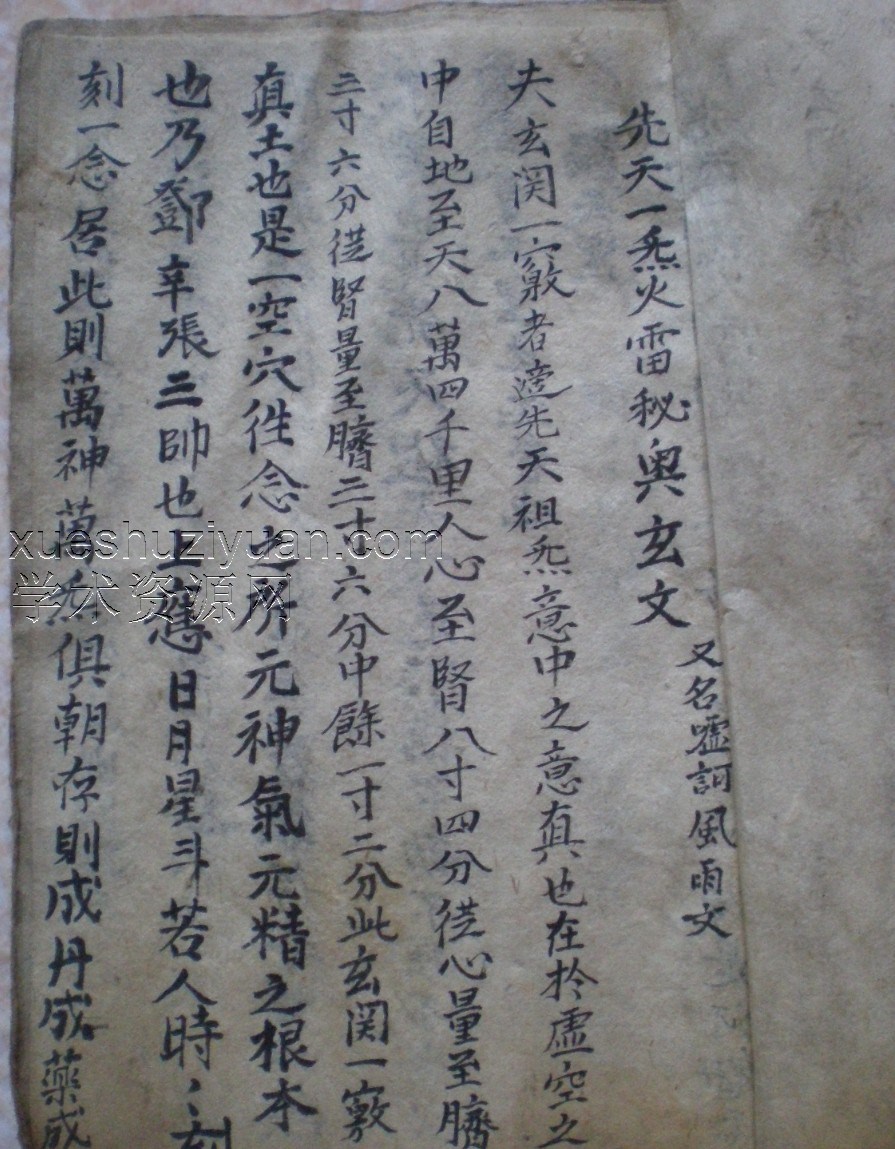 先天一炁火雷秘奥玄文
又名嘘訶風雨文
夫玄関一竅者遶先天祖炁意中之意真也在於虛空之
中自地至天八萬四千里人心至腎八寸四分従心量至臍
三寸六分従腎量至臍三寸六分中餘一寸二分此玄関一竅
真土也是一空穴徃念之所元神氣元精之根本
也乃鄧辛張三帥也上應日月星斗若人時〻刻
刻一念居此則萬神萬炁俱朝存則成丹成藥成
xueshuziyuan.com
学术资源网